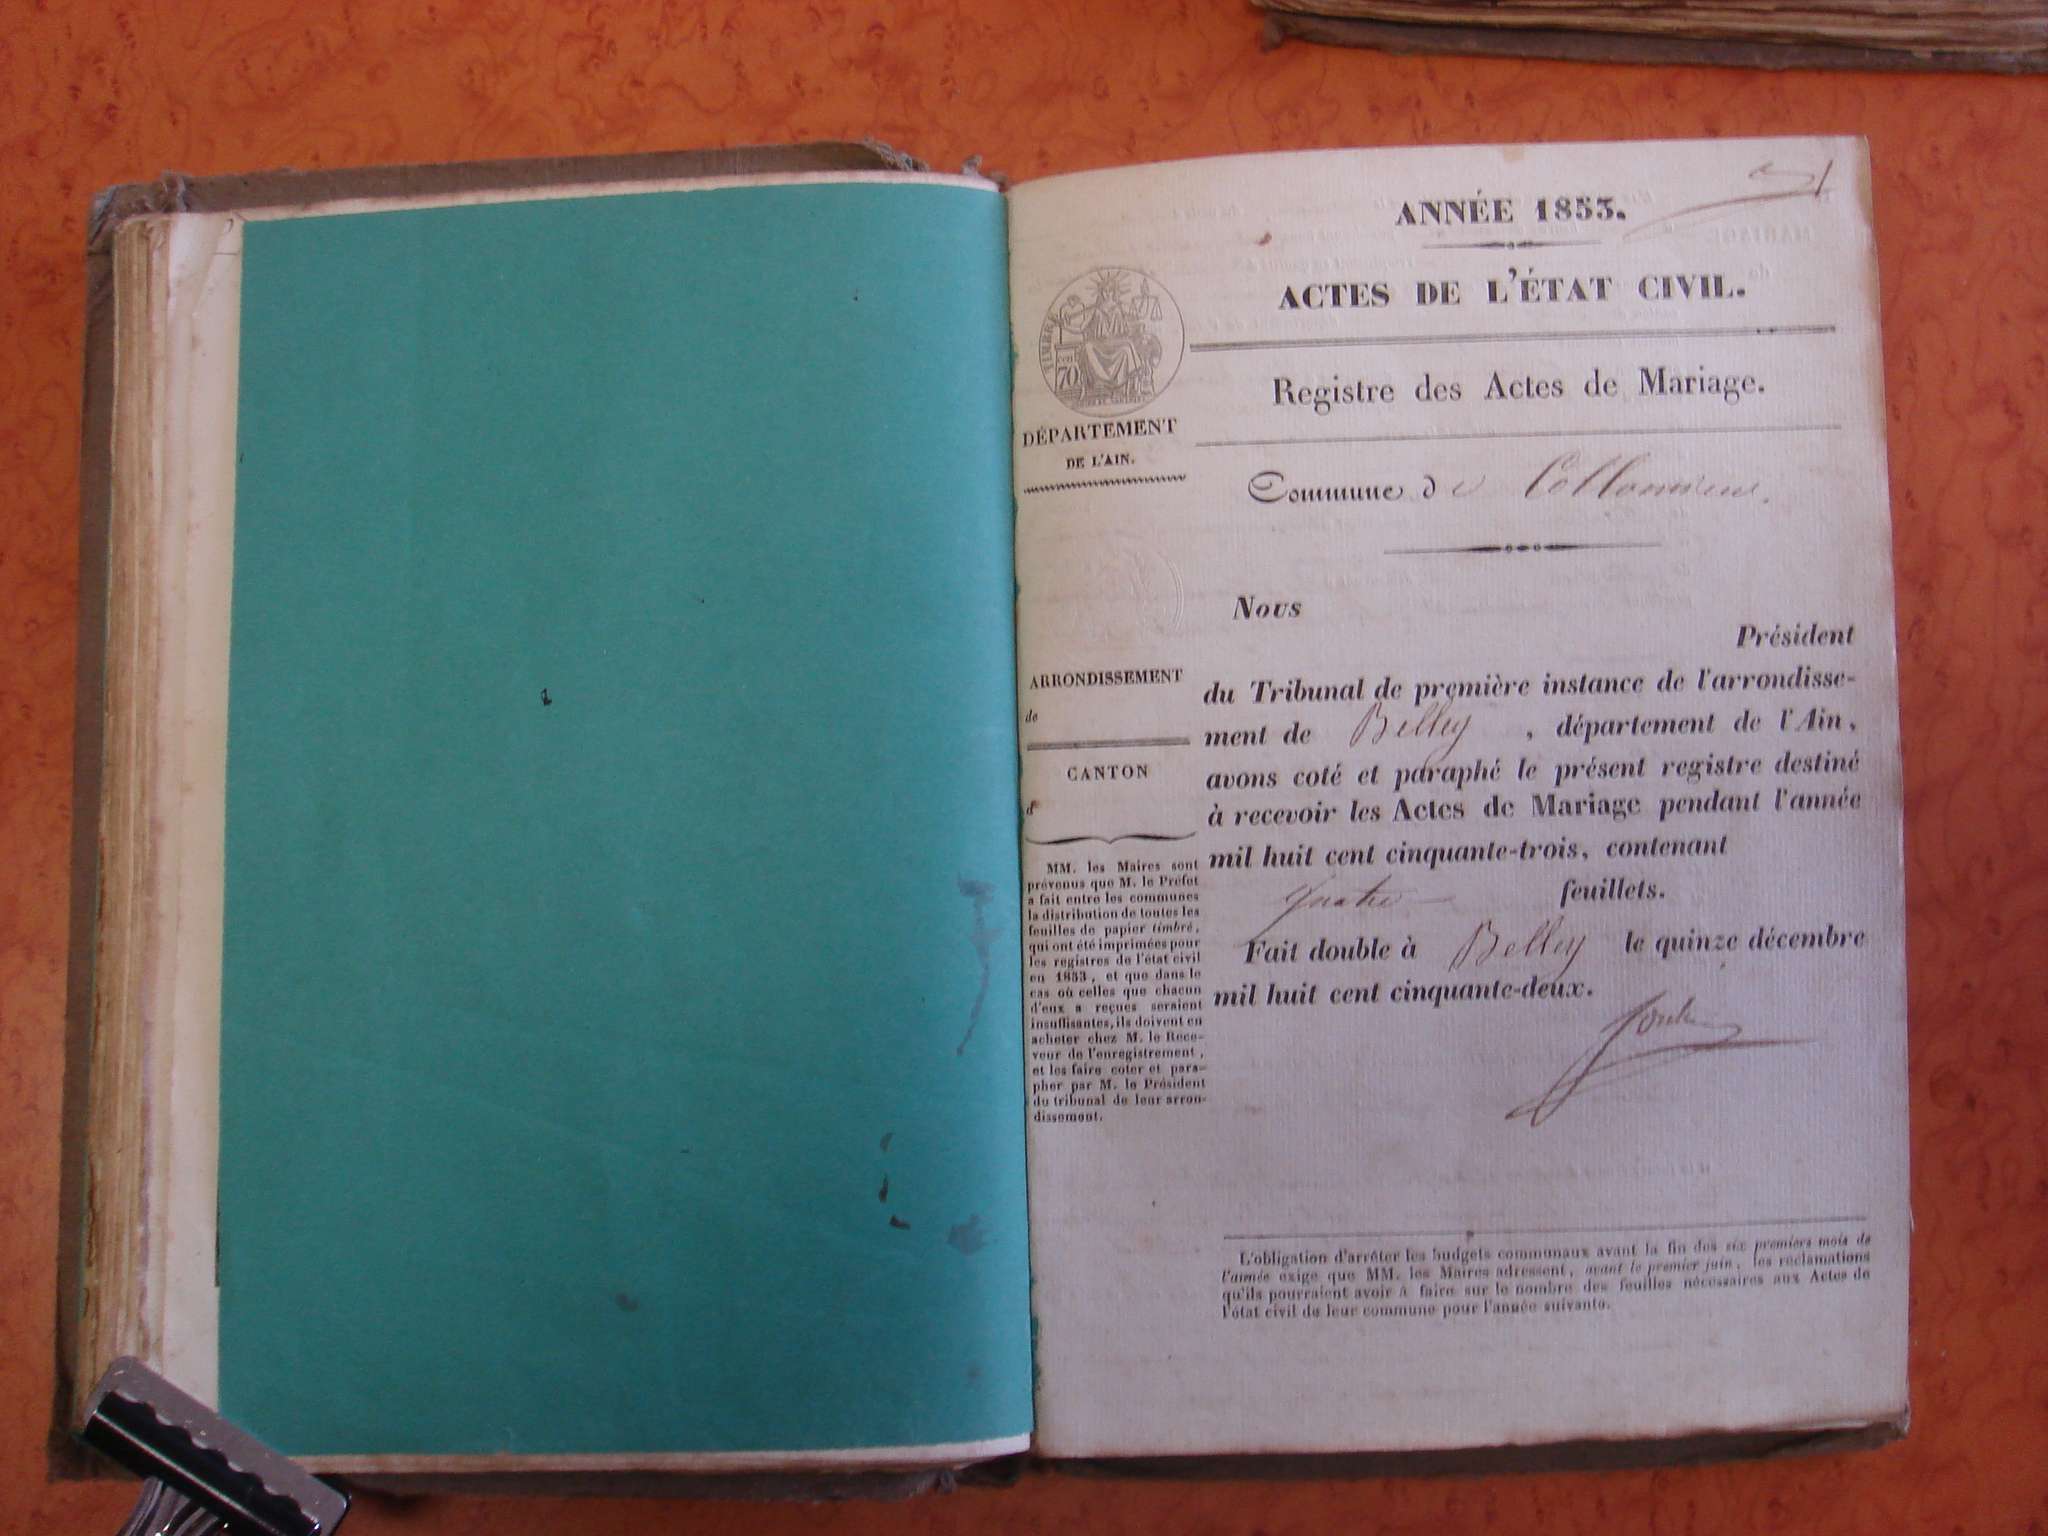 ANNÉE 1853.
ACTES DE L'ÉTAT CIVIL.
Registre des Actes de Mariage.
TIMBRE
70
DÉPARTEMENT
DE L'AIN.
Commune de
Nous
Président
du Tribunal de première instance de l'arrondisse-
ment de Belley, département de l'Ain,
avons coté et paraphé le présent registre destiné
à recevoir les Actes de Mariage pendant l'année
mil huit cent cinquante-trois, contenant
quatre feuillets.
Fait double à Belley le quinze décembre
mil huit cent cinquante-deux.
ARRONDISSEMENT
de
CANTON
d
MM. les Maires sont
prévenus que M. le Préfet
a fait entre les communes
la distribution de toutes les
feuilles de papier timbré,
qui ont été imprimées pour
les registres de l'état civil
en 1853, et que dans le
cas où celles que chacun
d'eux a reçues seraient
insuffisantes, ils doivent en
acheter chez M. le Rece-
veur de l'enregistrement,
et les faire coter et para-
pher par M. le Président
du tribunal de leur arron-
dissement.
L'obligation d'arrêter les budgets communaux avant la fin des six premiers mois de
l'année exige que MM. les Maires adressent, avant le premier juin, les réclamations
qu'ils pourraient avoir à faire sur le nombre des feuilles nécessaires aux Actes de
l'état civil de leur commune pour l'année suivante.